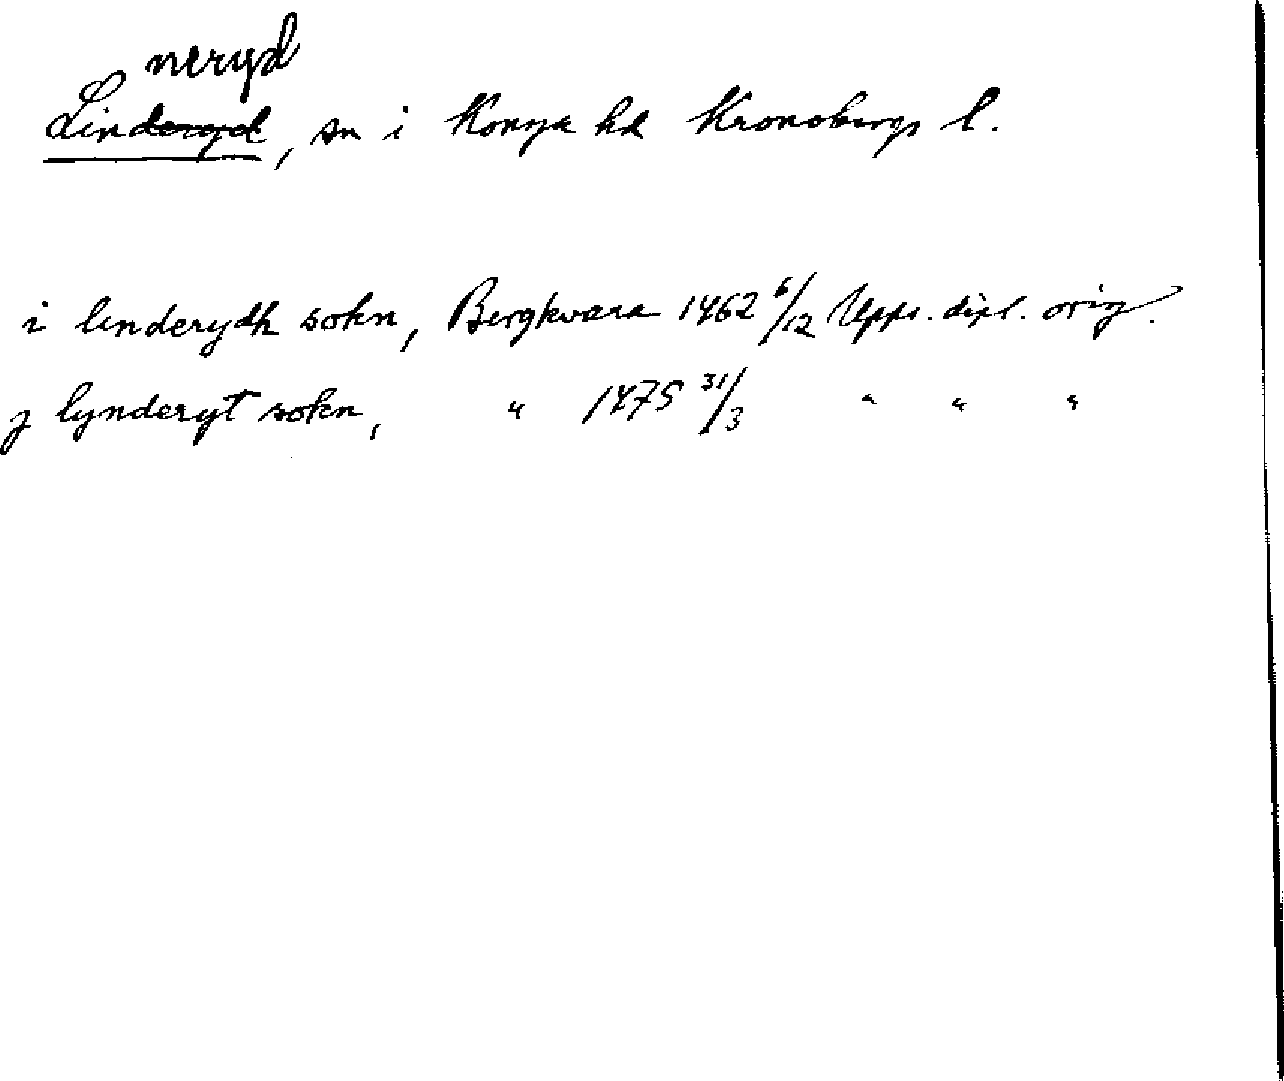 neryd
Linderyd, sn i Konga hd Kronobergs l.
i linderydh sokn, Bergkvara 1462 6/12 Upps. dipl. orig.
j lynderyt sokn, " 1475 31/3 " " "